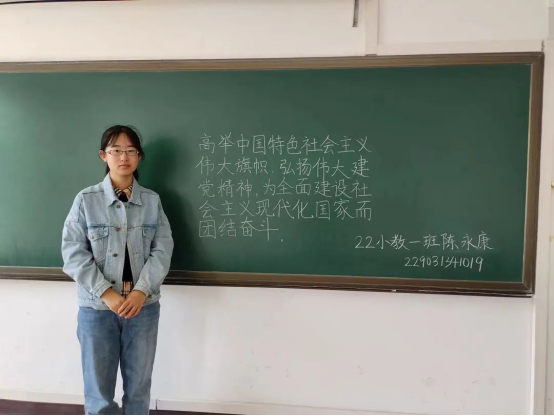 高举中国特色社会主义
伟大旗帜,弘扬伟大建
党精神,为全面建设社
会主义现代化国家而
团结奋斗。
22小教一班陈永康